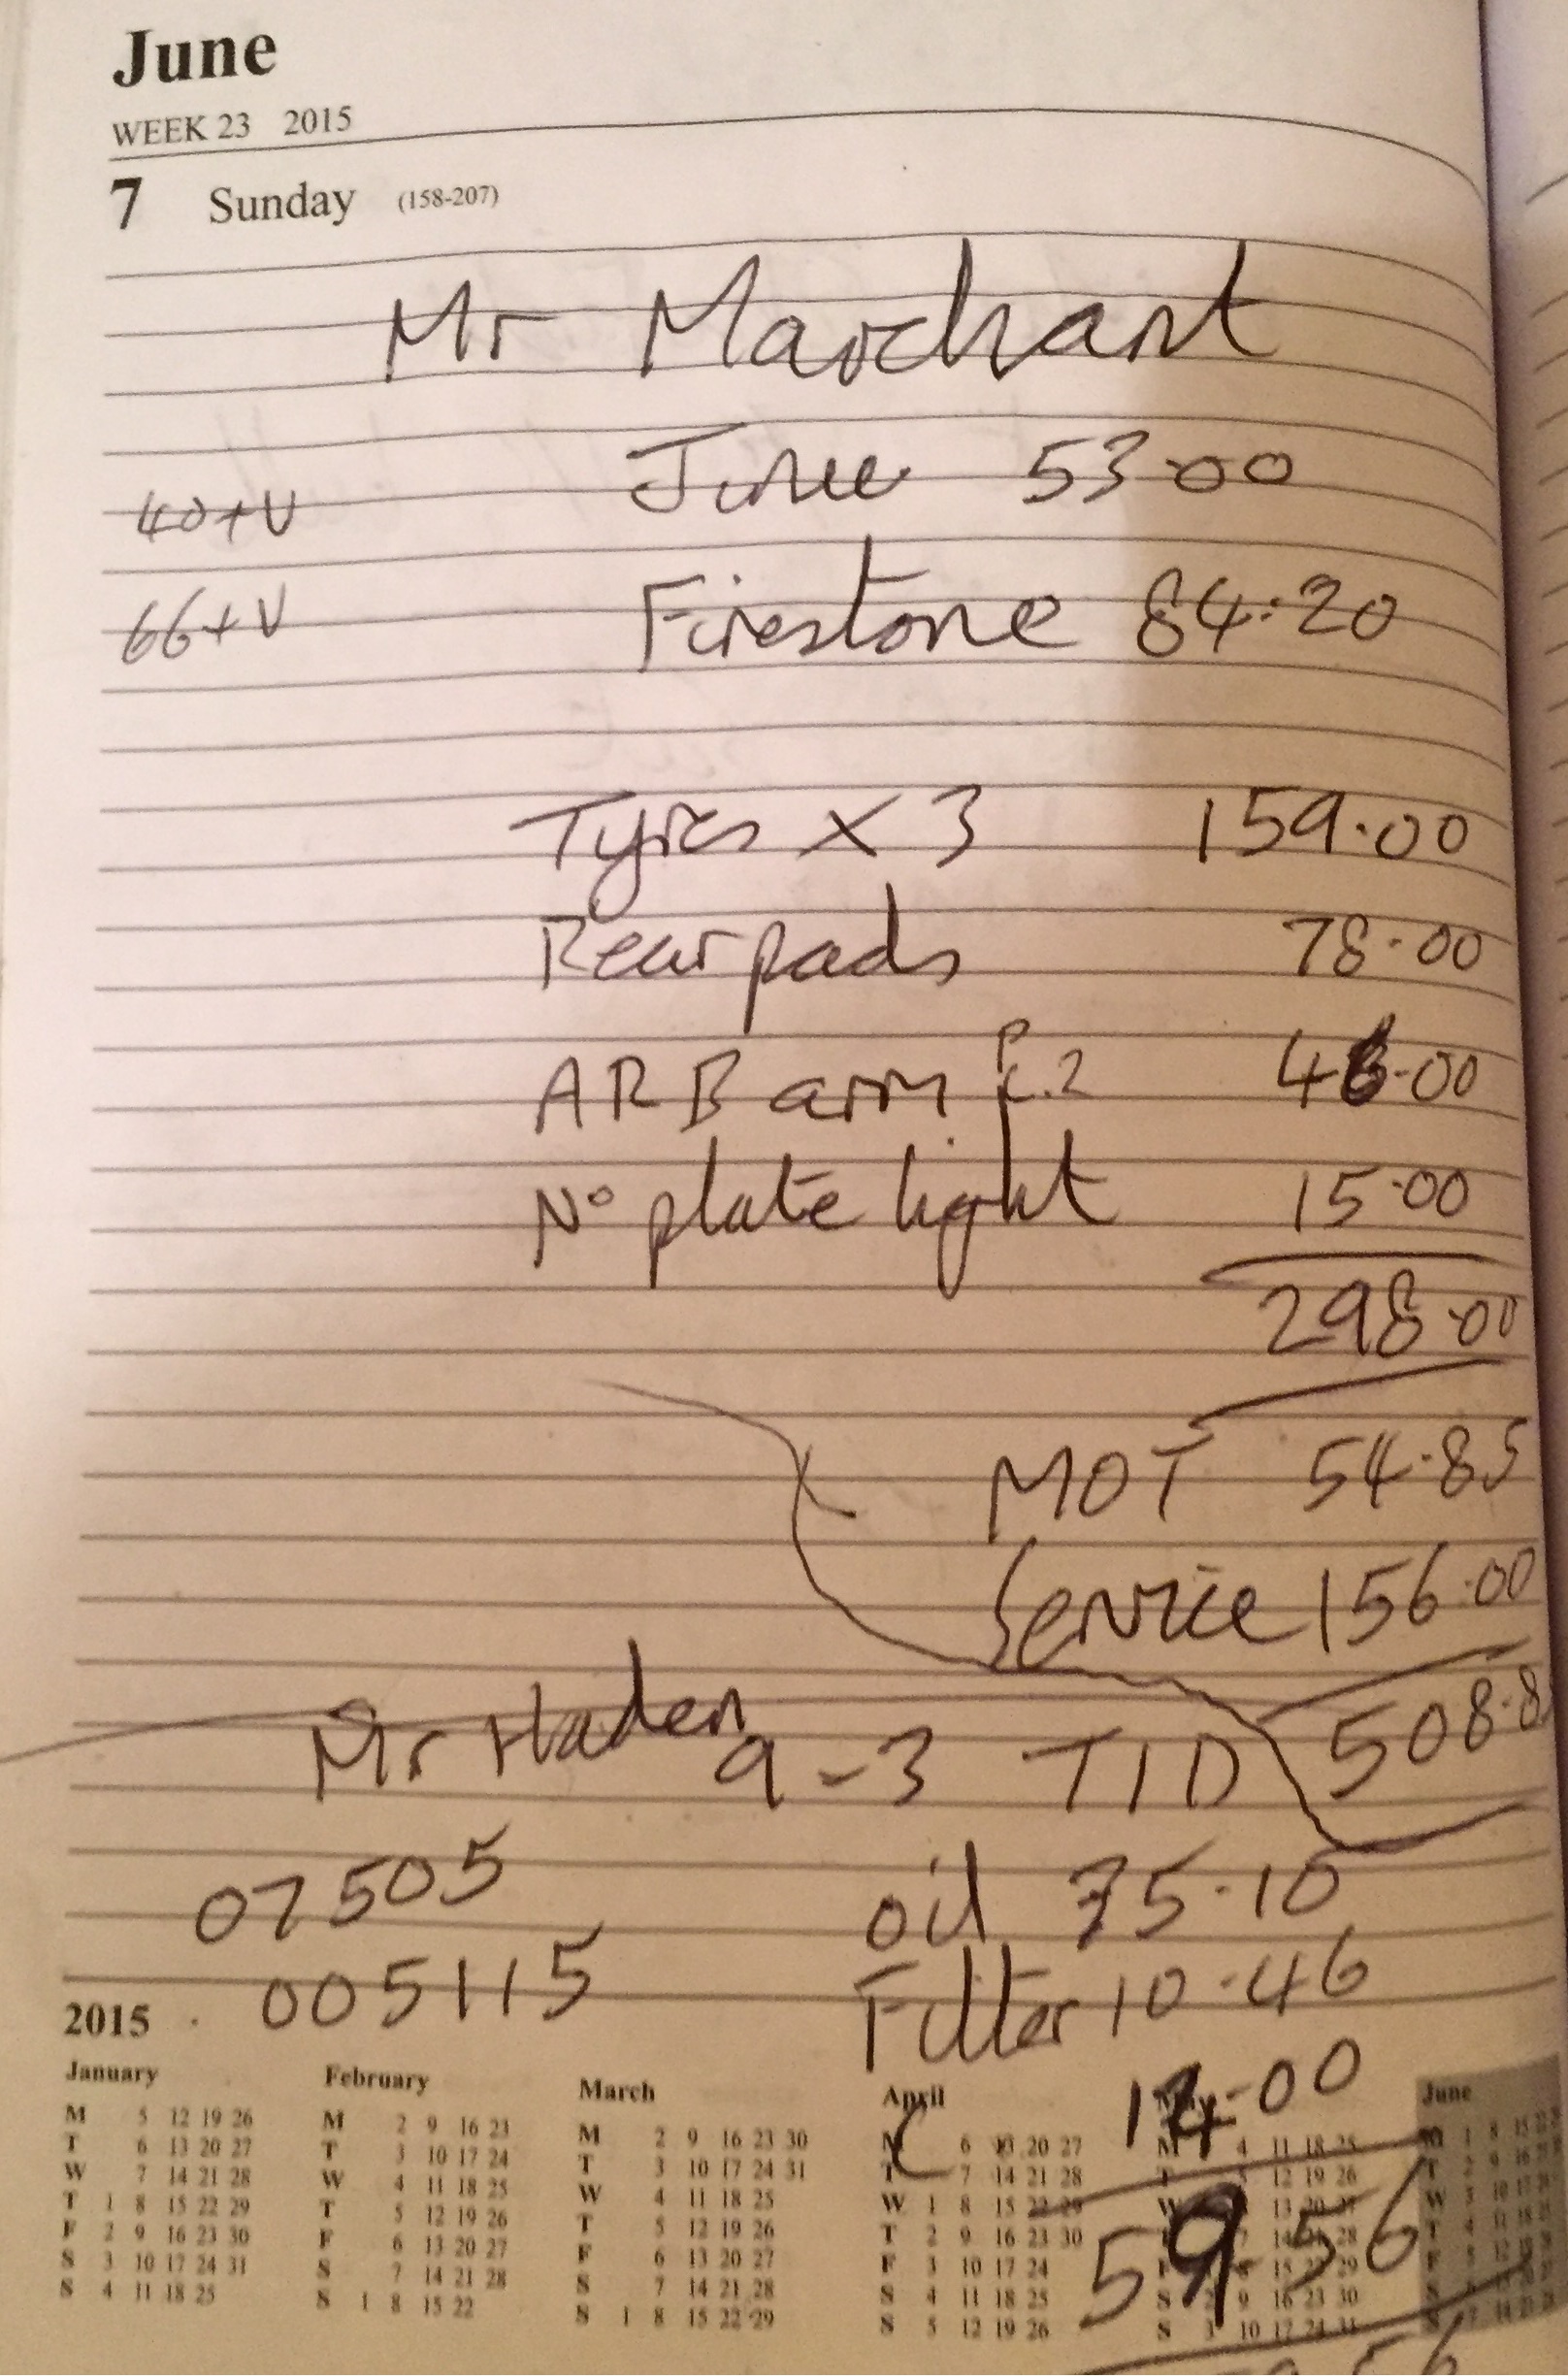 June
WEEK 23 2015
7 Sunday (158-207)
Mr Marchant
June 53.00
40+V
Firestone 84.20
66+V
Tyres x 3 159.00
Rear pads 78.00
ARB arm 46.00
No plate light 15.00
298.00
MOT 54.85
Service 156.00
508.8
Mr Haden 9-3 TID
07505
005115
oil 35.10
Filter 10.46
14.00
59.56
2015
January
M 5 12 19 26
T 6 13 20 27
W 7 14 21 28
T 1 8 15 22 29
F 2 9 16 23 30
S 3 10 17 24 31
S 4 11 18 25
February
M 2 9 16 23
T 3 10 17 24
W 4 11 18 25
T 5 12 19 26
F 6 13 20 27
S 7 14 21 28
S 1 8 15 22
March
M 2 9 16 23 30
T 3 10 17 24 31
W 4 11 18 25
T 5 12 19 26
F 6 13 20 27
S 7 14 21 28
S 1 8 15 22 29
April
M 6 13 20 27
T 7 14 21 28
W 1 8 15 22 29
T 2 9 16 23 30
F 3 10 17 24
S 4 11 18 25
S 5 12 19 26
M 4 11 18 25
12 19 26
13 20
28
15 29
S 9 16 23 30
S 3 10 17 24 31
June